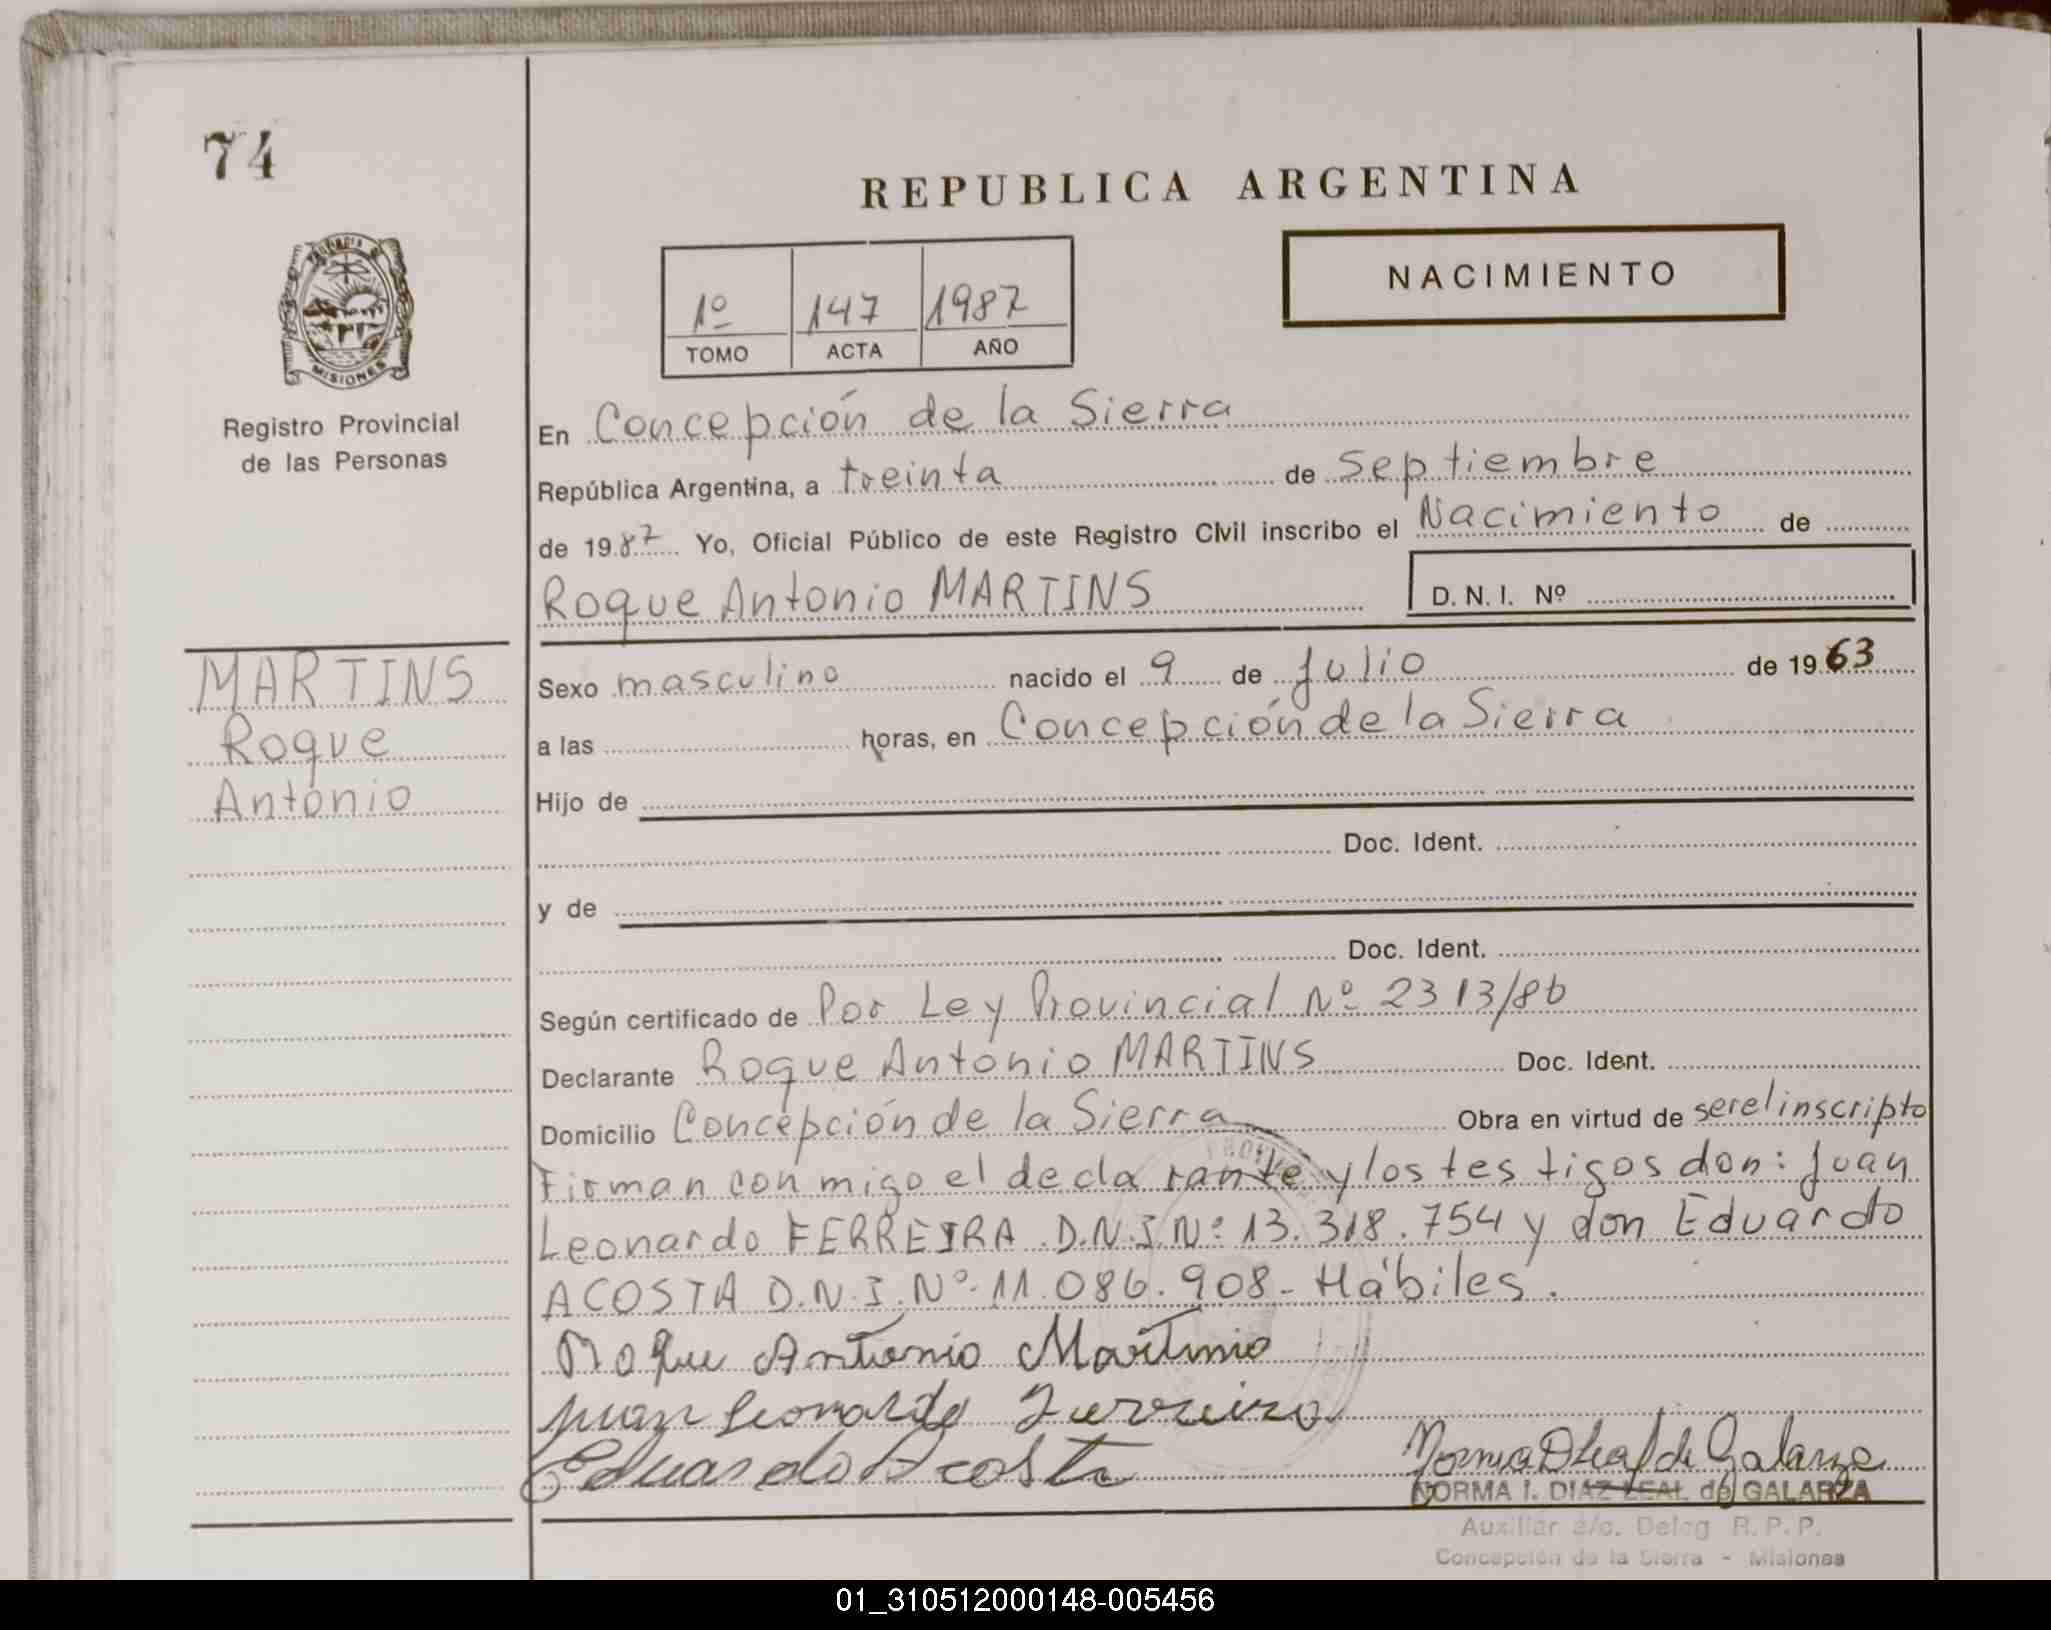 74
REPUBLICA ARGENTINA
NACIMIENTO
1º 147 1987
TOMO ACTA AÑO
PROVINCIA DE
MISIONES
Registro Provincial
de las Personas
En Concepción de la Sierra
República Argentina, a treinta de septiembre
de 1987 Yo, Oficial Público de este Registro Civil inscribo el Nacimiento de
Roque Antonio MARTINS D.N.I. Nº
MARTINS
Roque
Antonio
Sexo masculino nacido el 9 de julio de 1963
a las horas, en Concepción de la Sierra
Hijo de
Doc. Ident.
y de
Doc. Ident.
Según certificado de Por Ley Provincial Nº 2313/86
Declarante Roque Antonio MARTINS Doc. Ident.
Domicilio Concepción de la Sierra Obra en virtud de ser el inscripto
Firman conmigo el declarante y los testigos don: Juan
Leonardo FERREIRA D.N.I Nº 13.318.754 y don Eduardo
ACOSTA D.N.I.Nº 11.086.908 - Hábiles.
Roque Antonio Martins
Juan Leonardo Ferreira
Eduardo Acosta
Norma D Leal de Galarza
NORMA I. DIAZ LEAL de GALARZA
Auxiliar a/c. Deleg R.P.P.
Concepción de la Sierra - Misiones
01_310512000148-005456